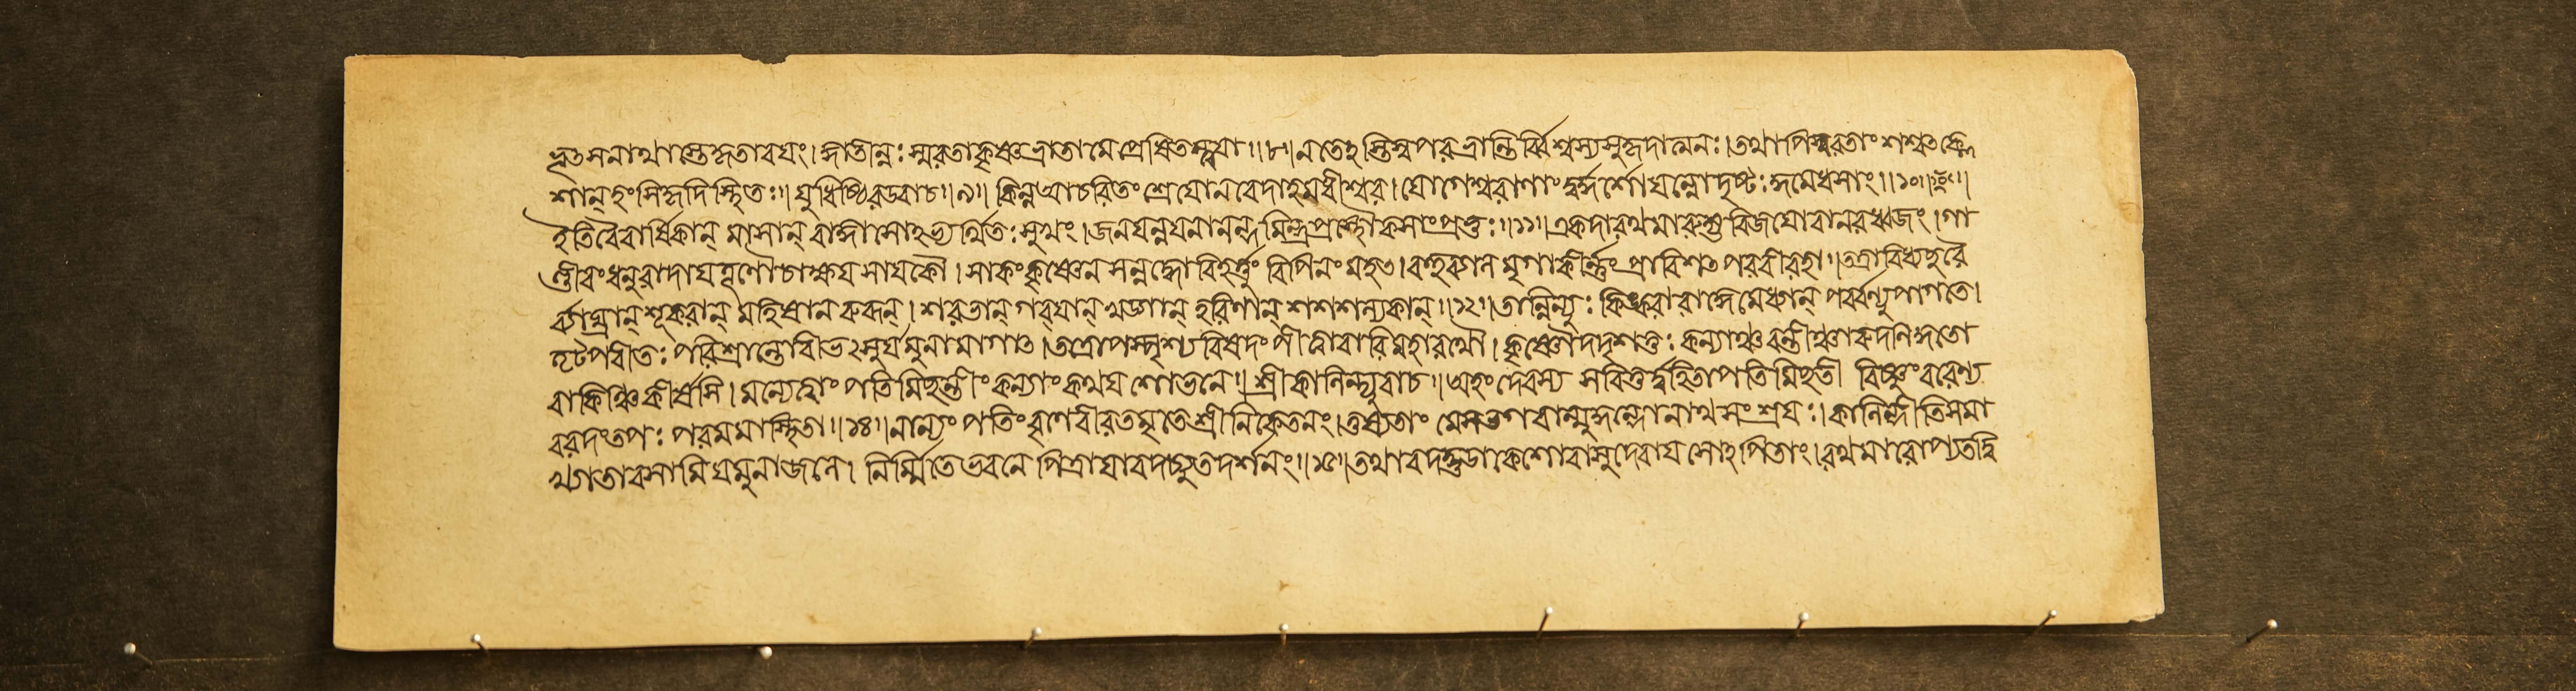 ভূৎ সনাথাস্তেকৃতাবয়ং। জ্ঞাতীন্নঃ স্মরতাকৃষ্ণভ্রাতামেপ্রেষিতস্ত্বয়া॥৮॥ নতেঽস্তিস্বপরভ্রান্তির্ব্বিশ্বস্যসুহৃদাত্মনঃ।তথাপিস্মরতাং শশ্বৎক্লে
শান্ হংসিহৃদিস্থিতঃ॥ যুধিষ্ঠিরউবাচ॥৯॥ কিন্নআচরিতং শ্রেয়োনবেদাহমধীশ্বর।যোগেশ্বরাণাংদুর্দ্দর্শোযন্নোদৃষ্টঃকুমেধসাং॥১০॥
ইতিবৈবার্ষিকান্ মাসান্ রাজ্ঞাসোঽভ্যর্থিতঃসুখং।জনয়ন্নয়নানন্দমিন্দ্রপ্রস্থৌকসাংপ্রভুঃ॥১১॥একদারথমারুহ্যবিজয়োবানরধ্বজং।গা
ণ্ডীবংধনুরাদায়তূণৌচাক্ষয়সায়কৌ। সাকংকৃষ্ণেনসন্নদ্ধোবিহর্ত্তুং বিপিনংমহৎ।বহুব্যালমৃগাকীর্ণংপ্রাবিশৎপরবীরহা।তত্রাবিধ্যচ্ছরৈ
র্ব্যাঘ্রান্ শূকরান্ মহিষানরুরূন্। শরভান্ গবয়ান্ খড়্গান্ হরিণান্ শশশল্যকান্॥১২॥তান্নিন্যুঃ কিঙ্করারাজ্ঞেমেধ্যান্ পর্ব্বণ্যুপাগতে।
তৃটপরীতঃ পরিশ্রান্তোবীভৎসুর্যমুনামাগাৎ।তত্রোপস্পৃশ্যবিষদংপীত্বাবারিমহারথৌ।কৃষ্ণৌদদৃশতুঃ কন্যাঞ্চরন্তীঞ্চারুদর্শনাং
বাকিঞ্চিকীর্ষসি।মন্যেত্বাং পতিমিচ্ছন্তীংকন্যাংকথয়শোভনে॥শ্রীকালিন্দ্যুবাচ॥অহংদেবস্য সবিতুর্দ্দুহিতাপতিমিচ্ছতী বিষ্ণুংবরেণ্য
বরদংতপঃ পরমমাস্থিতা॥১৪॥নান্যংপতিংবৃণেবীরতমৃতেশ্রীনিকেতনং।তুষ্যতাং মেসভগবান্মুকুন্দোনাথসংশ্রয়ঃ।কালিন্দীতিসমা
খ্যাতাবসামিযমুনাজলে। নির্ম্মিতেভবনেপিত্রাযাবদচ্যুতদর্শনং॥১৫॥তথাবদদ্গুডাকেশোবাসুদেবায়সোঽপিতাং।রথমারোপ্যতদ্বি